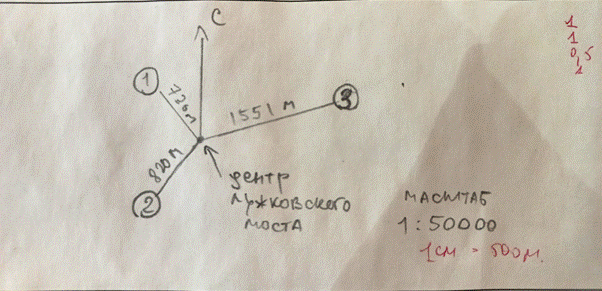 С
1
726м
1551 м
3
820м
2
центр
Лужковского
моста
МАСШТАБ
1:50000
1см = 500м.
1
1
0,5
1